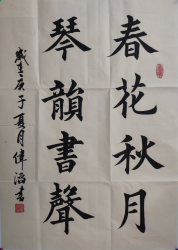 春花秋月
琴韻書聲
歲在庚子夏月偉滔書